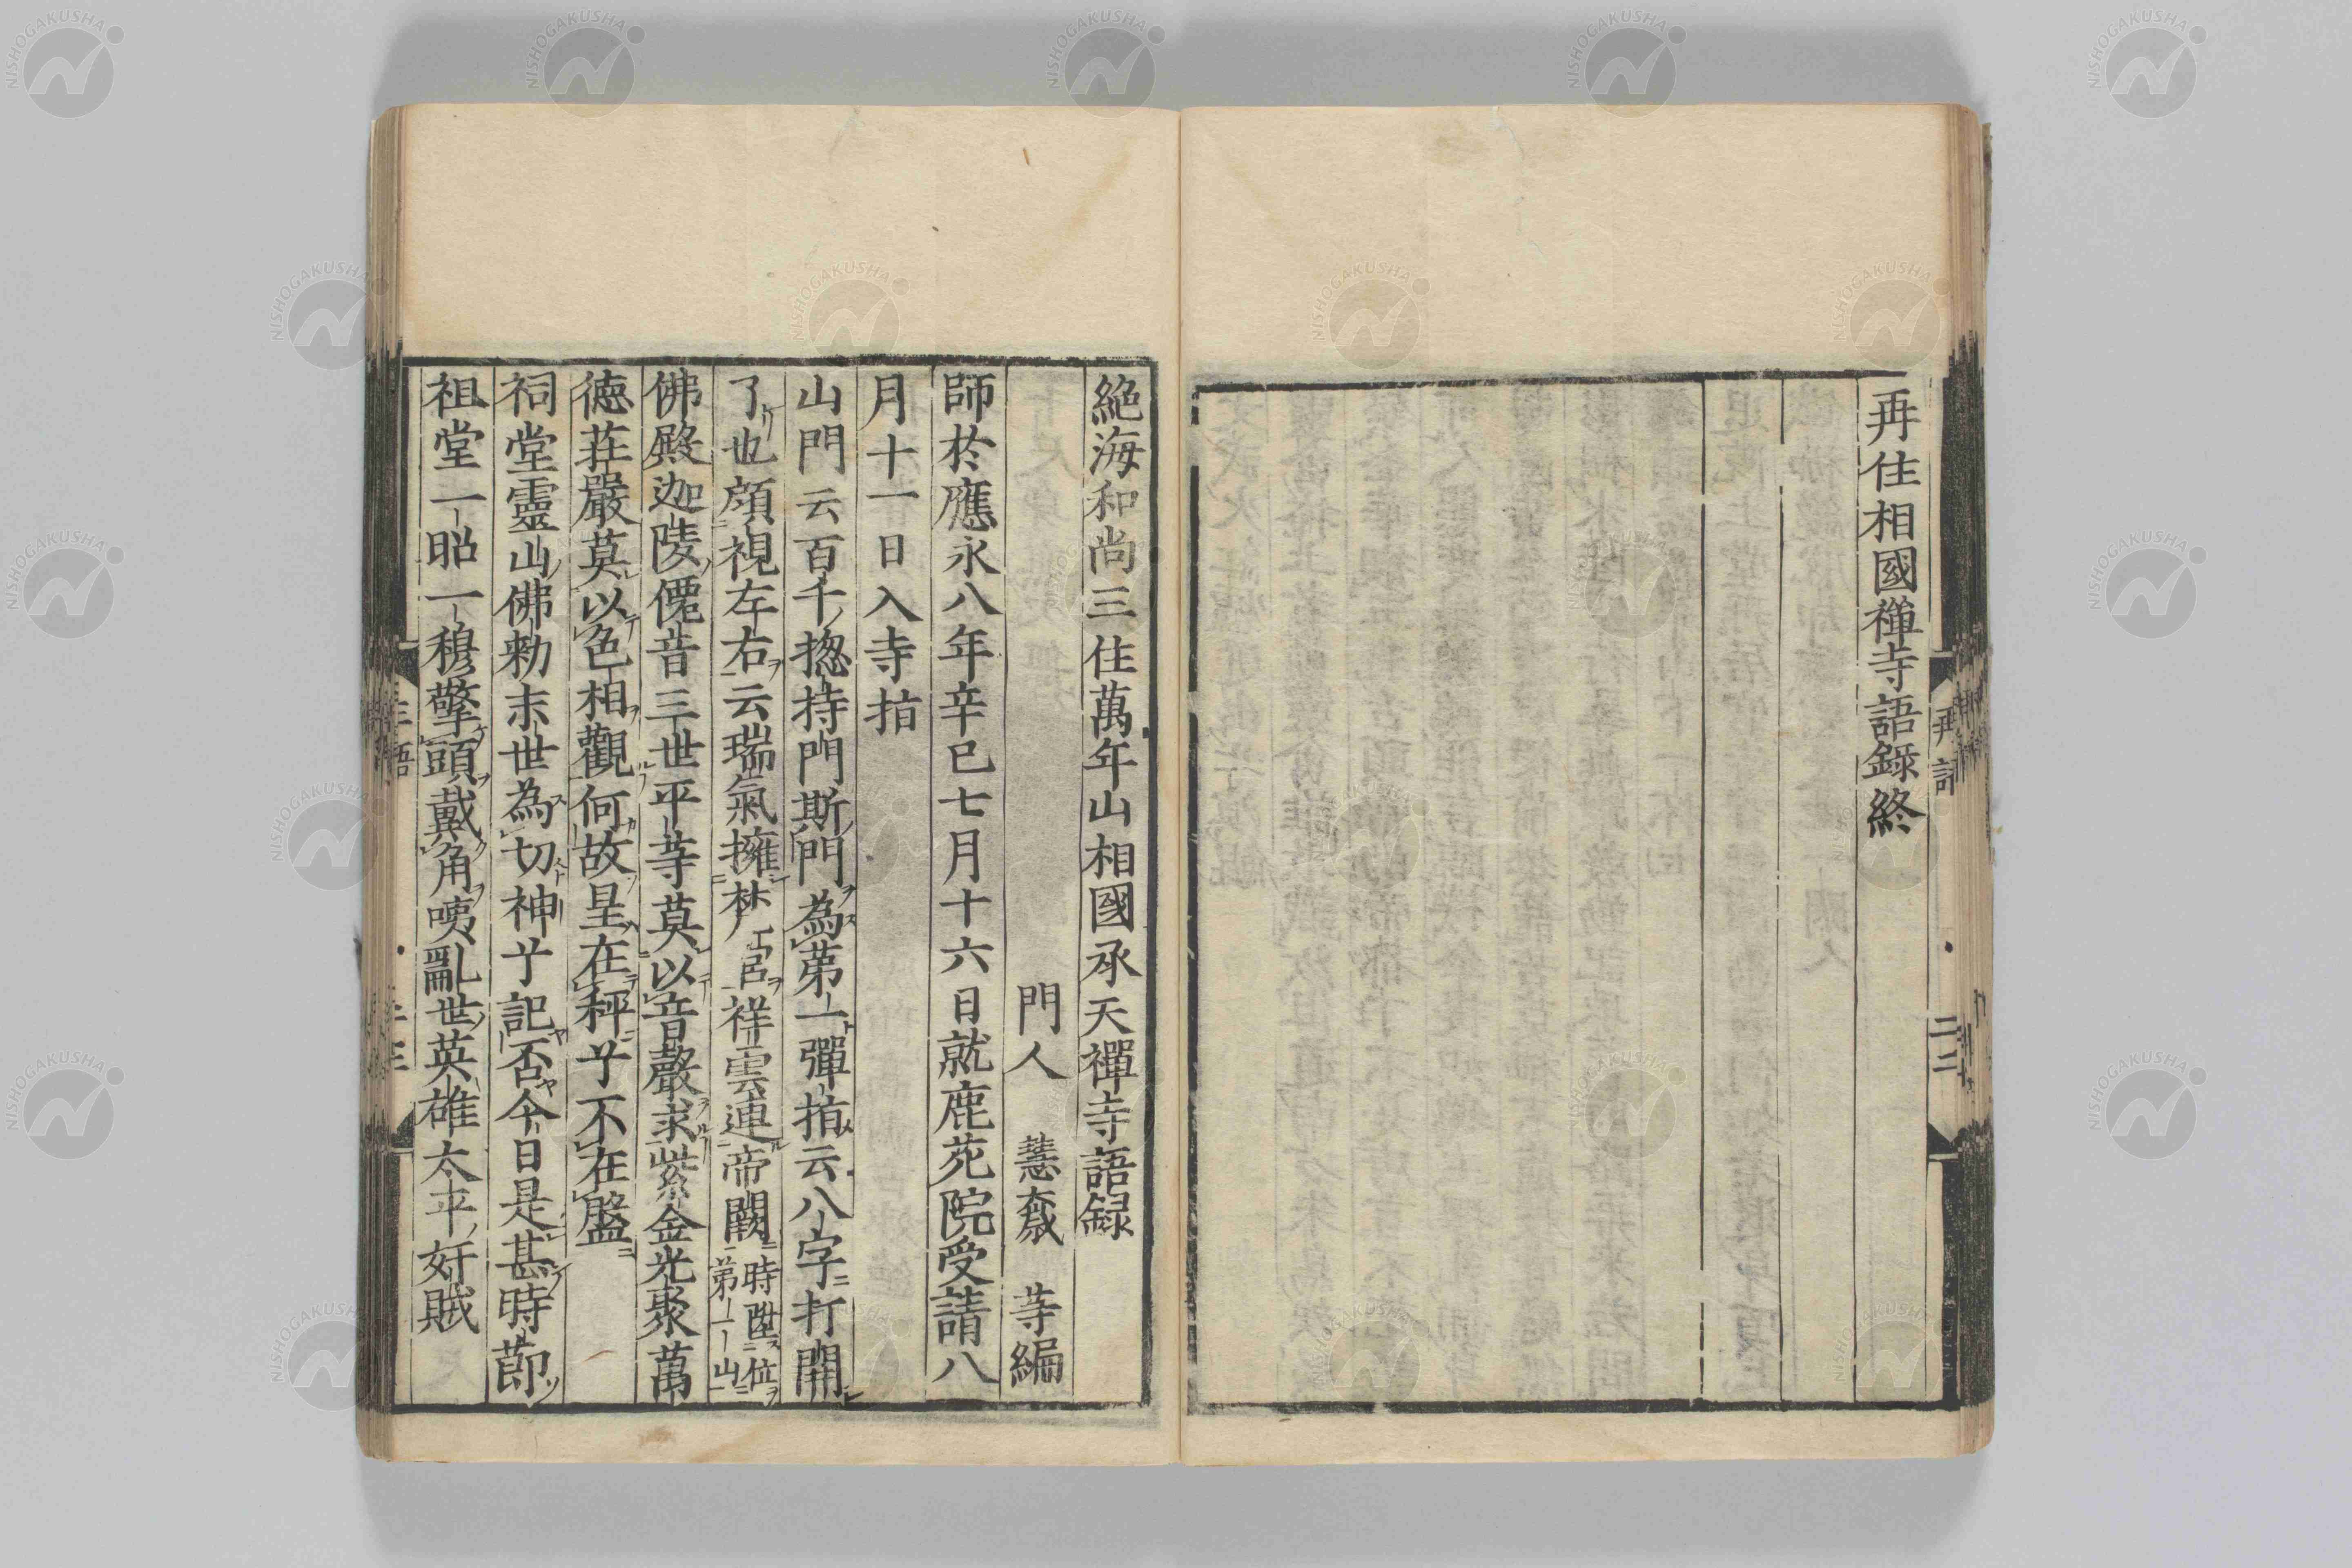 再住相國禪寺語録終
再語
二二
絶海和尚三住萬年山相國承天禪寺語録
門人 慧奯 等編
師於應永八年辛巳七月十六日就鹿苑院受請八
月十一日入寺指
山門云百千揔持門斯門為第一彈指云八字打開
了也顧視左右云瑞氣擁梵宮祥雲連帝闕
時陞位
第一山
佛殿迦陵僊音三世平等莫以音聲求紫金光聚萬
德莊嚴莫以色相觀何故星在秤兮不在盤
祠堂靈山佛勑末世為切神兮記否今日是甚時節
祖堂一昭一穆擎頭戴角咦亂世英雄太平奸賊
NISHOGAKUSHA